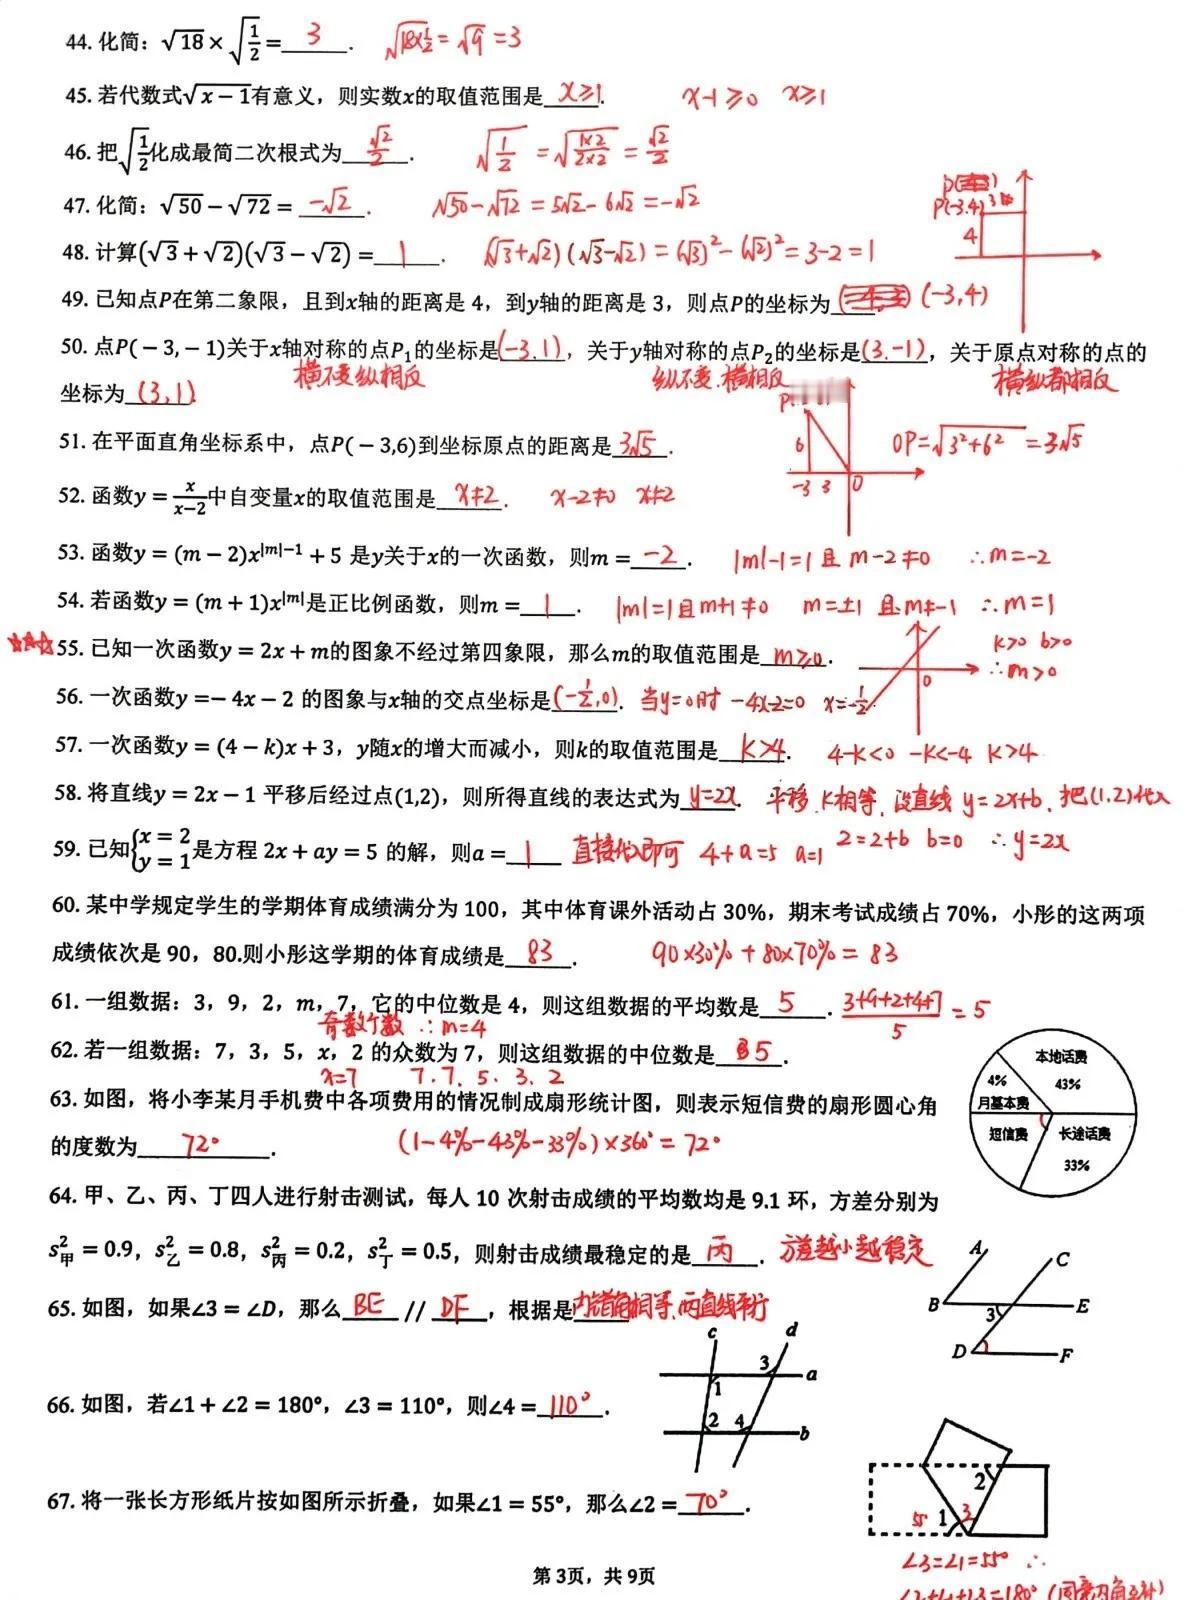 44. 化简：√18 × √(1/2) = 3 . √(18×1/2) = √9 = 3
45. 若代数式√(x − 1)有意义，则实数x的取值范围是 x≥1. x-1≥0 x≥1
46. 把√(1/2)化成最简二次根式为 √2/2 . √(1/2) = √(1×2/2×2) = √2/2
P(-3.4) 3
4
47. 化简：√50 − √72 = -√2 . √50-√72 = 5√2-6√2 = -√2
48. 计算(√3 + √2)(√3 − √2) = 1 . (√3+√2)(√3-√2) = (√3)²-(√2)² = 3-2 = 1
49. 已知点P在第二象限，且到x轴的距离是 4，到y轴的距离是 3，则点P的坐标为 (-3,4)
50. 点P(− 3, − 1)关于x轴对称的点P₁的坐标是(-3.1)，关于y轴对称的点P₂的坐标是(3.-1)，关于原点对称的点的
横不变纵相反 纵不变.横相反 横纵都相反
坐标为 (3,1)
51. 在平面直角坐标系中，点P(− 3,6)到坐标原点的距离是 3√5 . OP=√(3²+6²) =3√5
P
6
-3 3 O
52. 函数y = x/(x−2)中自变量x的取值范围是 x≠2 . x-2≠0 x≠2
53. 函数y = (m − 2)x^(|m|−1) + 5 是y关于x的一次函数，则m = -2 . |m|-1=1 且 m-2≠0 ∴m=-2
54. 若函数y = (m + 1)x^|m|是正比例函数，则m = 1 . |m|=1且m+1≠0 m=±1 且m≠-1 ∴m=1
55. 已知一次函数y = 2x + m的图象不经过第四象限，那么m的取值范围是 m≥0 . k>0 b>0
0
∴m>0
56. 一次函数y =− 4x − 2 的图象与x轴的交点坐标是(-1/2,0). 当y=0时 -4x-2=0 x=-1/2
57. 一次函数y = (4 − k)x + 3，y随x的增大而减小，则k的取值范围是 k>4. 4-k<0 -k<-4 k>4
58. 将直线y = 2x − 1 平移后经过点(1,2)，则所得直线的表达式为 y=2x. 平移.k相等.设直线 y=2x+b.把(1.2)代入
59. 已知{x = 2 y = 1是方程 2x + ay = 5 的解，则a = 1 直接代入即可 4+a=5 a=1 2=2+b b=0 ∴y=2x
60. 某中学规定学生的学期体育成绩满分为 100，其中体育课外活动占 30%，期末考试成绩占 70%，小彤的这两项
成绩依次是 90，80.则小彤这学期的体育成绩是 83 . 90×30%+80×70%= 83
61. 一组数据：3，9，2，m，7，它的中位数是 4，则这组数据的平均数是 5 . (3+9+2+4+7)/5 = 5
奇数个数 ∴m=4
62. 若一组数据：7，3，5，x，2 的众数为 7，则这组数据的中位数是 5 .
x=7 7.7.5.3.2
本地话费
43%
4%
月基本费
短信费
长途话费
33%
63. 如图，将小李某月手机费中各项费用的情况制成扇形统计图，则表示短信费的扇形圆心角
的度数为 72° . (1-4%-43%-33%)×360°= 72°
64. 甲、乙、丙、丁四人进行射击测试，每人 10 次射击成绩的平均数均是 9.1 环，方差分别为
s²甲 = 0.9，s²乙 = 0.8，s²丙 = 0.2，s²丁 = 0.5，则射击成绩最稳定的是 丙 . 方差越小越稳定
65. 如图，如果∠3 = ∠D，那么 BE // DF ，根据是内错角相等.两直线平行
A C
B 3 E
D F
66. 如图，若∠1 + ∠2 = 180°，∠3 = 110°，则∠4 = 110° .
c d
3 a
1
2 4 b
67. 将一张长方形纸片按如图所示折叠，如果∠1 = 55°，那么∠2 = 70° .
2
55 1 3
∠3=∠1=55° ∴
第 3页，共 9页